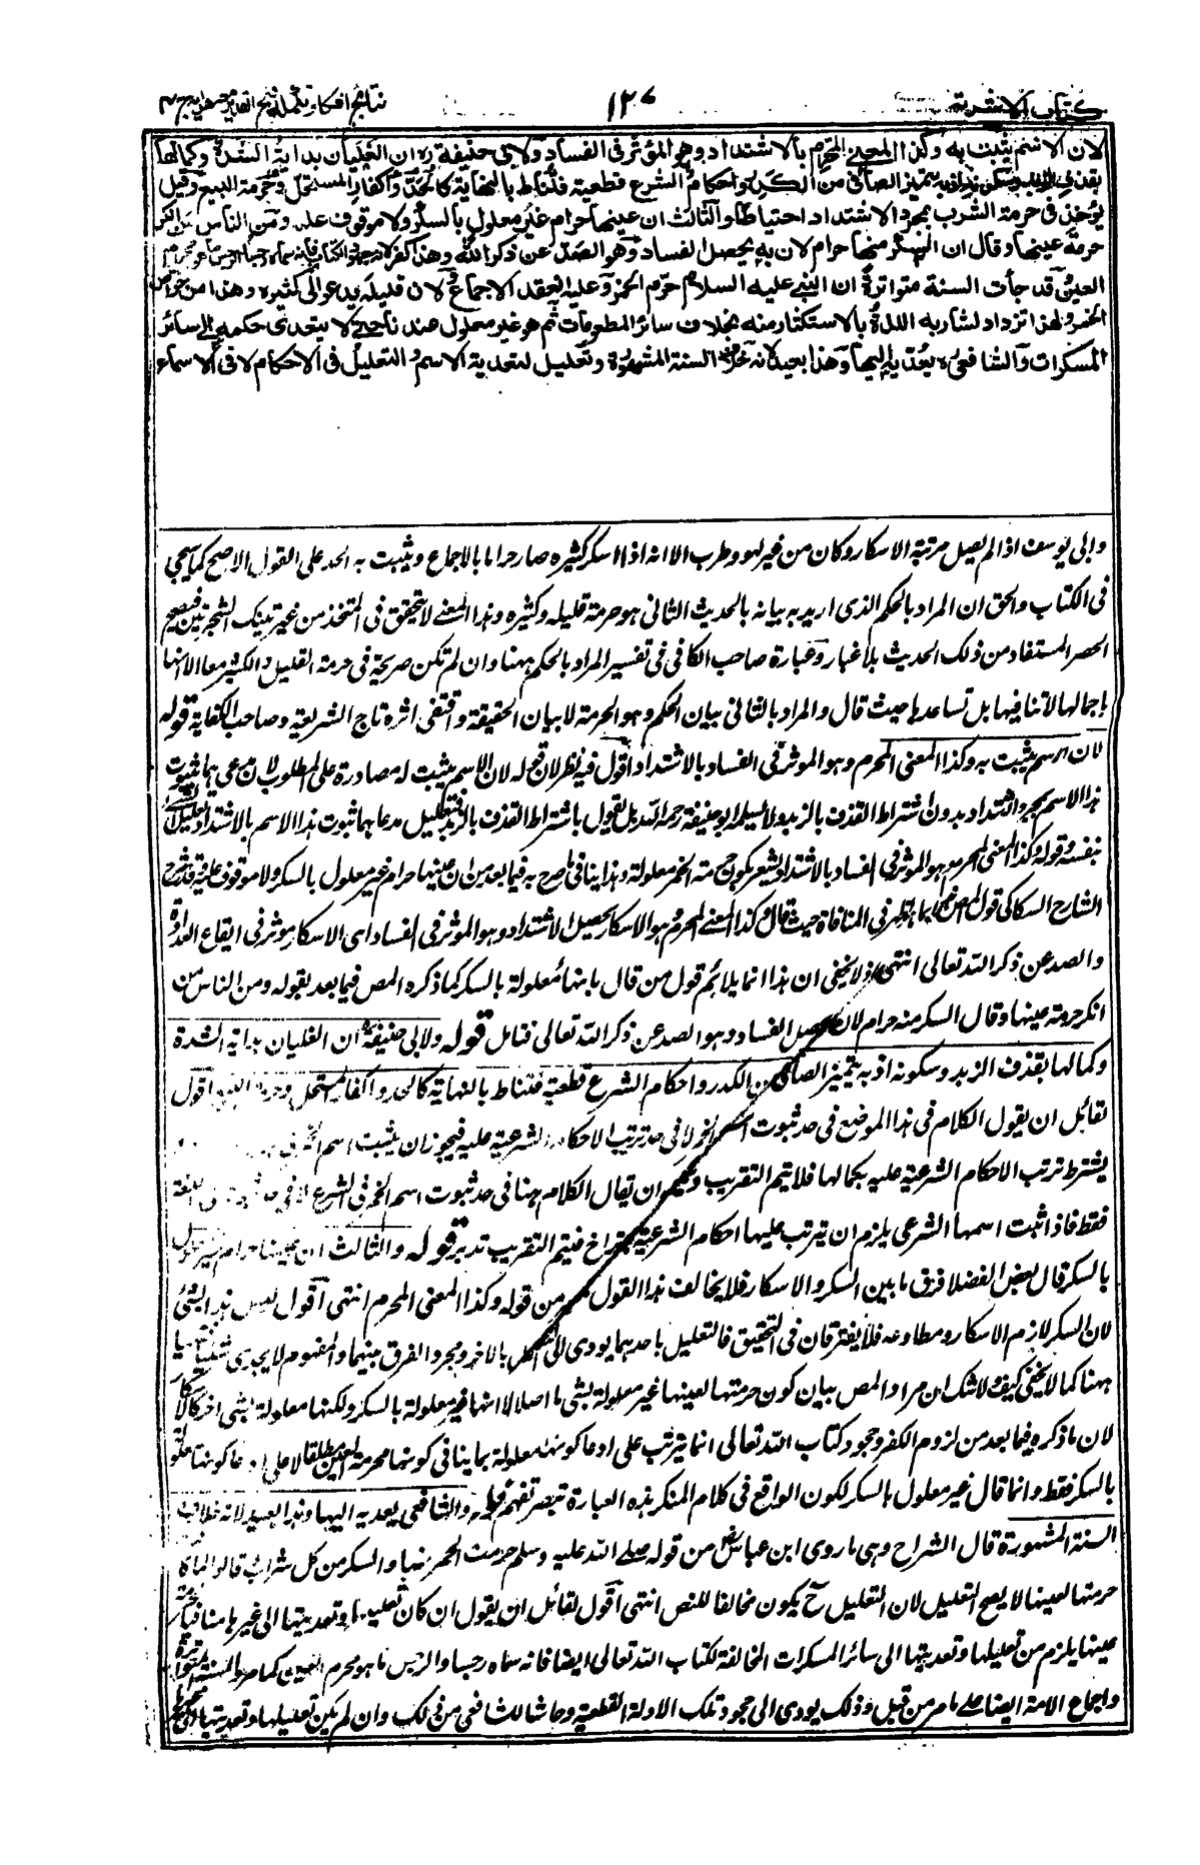 كتاب الاشربة ١٢٧ نتائج افكار تكملة فتح القدير مع هدايه ج ٤
لان الاسم يثبت به وكذا المعنى المحرم بالاشتداد وهو المؤثر في الفساد ولابي حنيفة ره ان الغليان بداية الشدة وكمالها
بقذف الزبد وسكونه اذ به يتميز الصافي من الكدر واحكام الشرع قطعية فتناط بالنهاية كالحد واكفار المستحل وحرمة البيع وقيل
يؤخذ في حرمة الشرب بمجرد الاشتداد احتياطا والثالث ان عينها حرام غير معلول بالسكر ولا موقوف عليه ومن الناس من انكر
حرمة عينها وقال ان السكر منها حرام لان به يحصل الفساد وهو الصد عن ذكر الله وهذا كفر لانه جحود الكتاب فانه سماه رجسا والرجس ما هو محرم
العين وقد جاءت السنة متواترة ان النبي عليه السلام حرم الخمر وعليه انعقد الاجماع ولان قليله يدعو الى كثيره وهذا من خواص
الخمر ولهذا تزداد لشاربه اللذة بالاستكثار منه بخلاف سائر المطعومات ثم هو غير معلول عندنا حتى لا يتعدى حكمه الى سائر
المسكرات والشافعي ره يعديه اليها وهذا بعيد لانه خلاف السنة المشهورة وتعليل لتعدية الاسم والتعليل في الاحكام لا في الاسماء
وابي يوسف اذا لم يصل مرتبة الاسكار وكان من غير لهو وطرب الا انه اذا اسكر كثيره صار حراما بالاجماع ويثبت به الحد على القول الاصح كما سيجي
في الكتاب والحق ان المراد بالحكم الذى اريد به بيانه بالحديث الثاني هو حرمة قليله وكثيره وهذا المعنى لا يتحقق في المتخذ من غير تينك الشجرتين فيصح
الحصر المستفاد من ذلك الحديث بلا غبار وعبارة صاحب الكافي في تفسير المراد بالحكم ههنا وان لم تكن صريحة في حرمة القليل والكثير معا الا انها
باجمالها لا تنافيها بل تساعدها حيث قال والمراد بالثاني بيان الحكم وهو الحرمة لا بيان الحقيقة واقتفى اثره تاج الشريعة وصاحب الكفاية قوله
لان الاسم يثبت به وكذا المعنى المحرم وهو المؤثر في الفساد بالاشتداد اقول فيه نظر لان قوله لان الاسم يثبت له مصادرة على المطلوب لان مدعيهما ثبوت
هذا الاسم بمجرد الاشتداد بدون اشتراط القذف بالزبد ولا يسلمه ابو حنيفة رحمه الله بل يقول باشتراط القذف بالزبد فتعليل مدعاهما ثبوت هذا الاسم بالاشتداد
نفسه وقوله وكذا المعنى المحرم وهو المؤثر في الفساد بالاشتداد يشعر بكون حرمة الخمر معلولة وهذا ينافي ما صرح به فيما بعد من ان عينها حرام غير معلول بالسكر ولا موقوف عليه
الشارح السكاكي في المنافاة حيث قال وكذا المعنى المحرم وهو الاسكار يحصل بالاشتداد وهو المؤثر في الفساد اى الاسكار مؤثر في ايقاع العداوة
والصد عن ذكر الله تعالى انتهى اذ لا يخفى ان هذا انما يلائم قول من قال بانها معلولة بالسكر كما ذكره المص فيما بعد بقوله ومن الناس من
انكر حرمة عينها وقال السكر منه حرام لان به يحصل الفساد وهو الصد عن ذكر الله تعالى فتامل قوله ولابي حنيفة ان الغليان بداية الشدة
وكمالها بقذف الزبد وسكونه اذ به يتميز الصافي من الكدر واحكام الشرع قطعية فتناط بالنهاية كالحد واكفار المستحل وحرمة البيع اقول
لقائل ان يقول الكلام في هذا الموضع في حد ثبوت اسم الخمر لا في حد ترتب الاحكام الشرعية عليه فيجوز ان يثبت اسم الخمر
يشترط ترتب الاحكام الشرعية عليه بكمالها فلا يتم التقريب ويمكن ان يقال الكلام ههنا في حد ثبوت اسم الخمر في الشرع لا في اللغة
فقط فاذا ثبت اسمها الشرعي يلزم ان يترتب عليها احكام الشرعية فيتم التقريب تدبر قوله والثالث ان عينها حرام غير معلول
بالسكر قال بعض الفضلا فرق ما بين السكر والاسكار فلا يخالف هذا القول من قوله وكذا المعنى المحرم انتهى اقول ليس هذا بشئ
لان السكر لازم الاسكار ومطاوعه فلا يفترقان في التحقيق فالتعليل باحدهما يودى الى التعليل بالآخر ومجرد الفرق بينهما والمفهوم لا يجدى شيئا
ههنا كما لا يخفى كيف ولا شك ان مراد المص بيان كون حرمتها لعينها غير معلولة بشئ ما اصلا لا انها غير معلولة بالسكر ولكنها معلولة بشئ اخر كالاسكار
لان ما ذكره فيما بعد من لزوم الكفر وجحود كتاب الله تعالى انما يترتب على ادعا كونها معلولة بما ينافي كونها محرمة العين مطلقا لا على ادعا كونها معلولة
بالسكر فقط وانما قال غير معلول بالسكر لكون الواقع في كلام المنكر هذه العبارة تبصر تفهم قوله والشافعي يعديه اليها وهذا بعيد لانه خلاف
السنة المشهورة قال الشراح وهى ما روى ابن عباس رض من قوله صلى الله عليه وسلم حرمت الخمر لعينها والسكر من كل شراب قالوا لما كان
حرمتها لعينها لا يصح التعليل لان التعليل ح يكون مخالفا للنص انتهى اقول لقائل ان يقول ان كان تعليلها وتعديتها الى غيرها منافيا لحرمة
عينها يلزم من تعليلها وتعديتها الى سائر المسكرات المخالفة لكتاب الله تعالى ايضا فانه سماه رجسا والرجس ما هو محرم العين كما مر والسنة المتواترة
واجماع الامة ايضا على ما مر من قبل وذلك يودى الى جحود تلك الادلة القطعية وحاشا للشافعي من ذلك وان لم يكن تعليلها وتعديتها